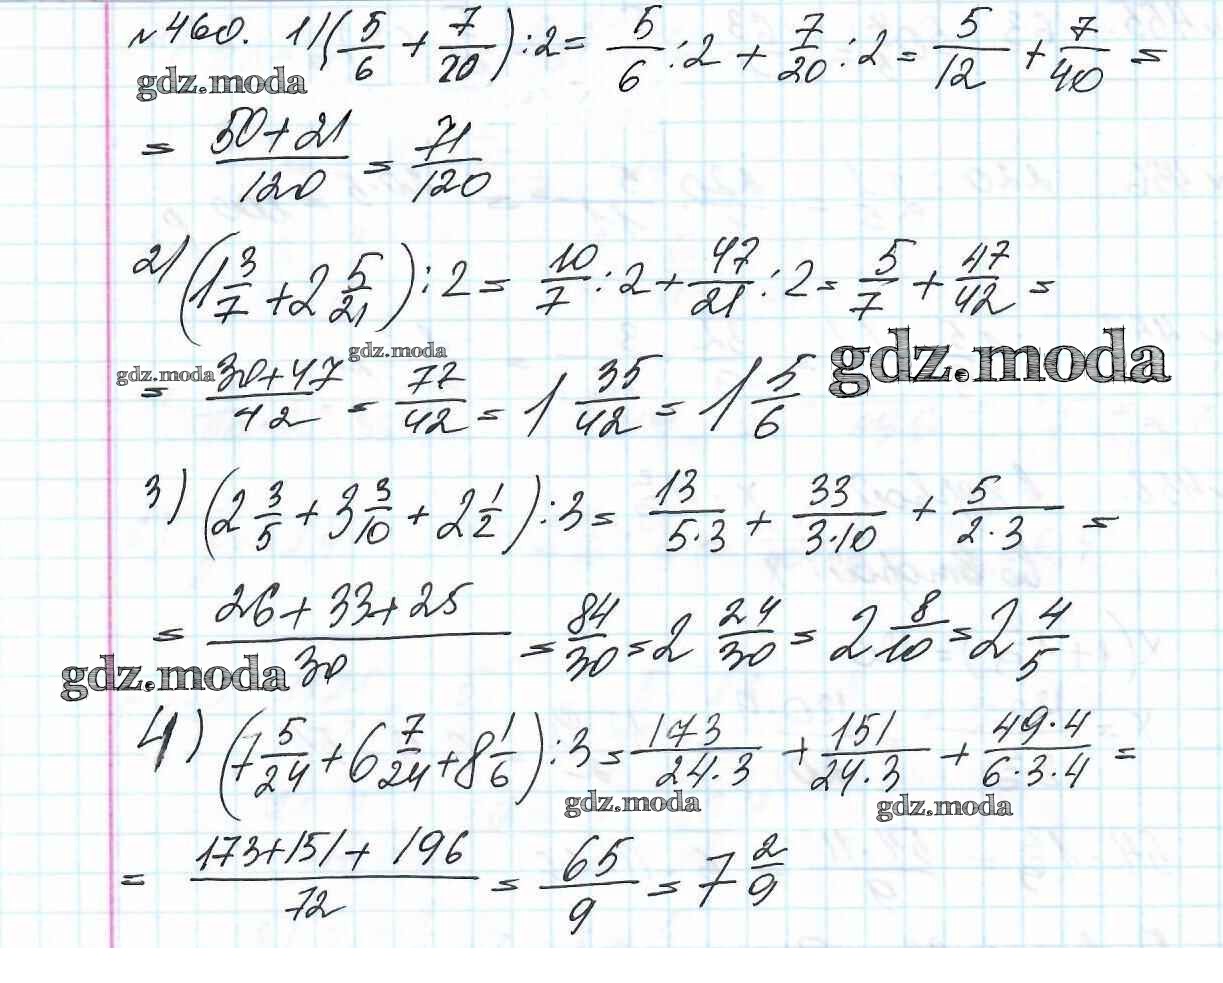 №460. 1) (5/6 + 7/20) : 2 = 5/6 : 2 + 7/20 : 2 = 5/12 + 7/40 =
gdz.moda
= 50+21/120 = 71/120
2) (1 3/7 + 2 5/21) : 2 = 10/7 : 2 + 47/21 : 2 = 5/7 + 47/42 =
gdz.moda
gdz.moda
gdz.moda
= 30+47/42 = 77/42 = 1 35/42 = 1 5/6
3) (2 3/5 + 3 3/10 + 2 1/2) : 3 = 13/5·3 + 33/3·10 + 5/2·3 =
= 26+33+25/30 = 84/30 = 2 24/30 = 2 8/10 = 2 4/5
gdz.moda
4) (7 5/24 + 6 7/24 + 8 1/6) : 3 = 173/24·3 + 151/24·3 + 49·4/6·3·4 =
gdz.moda
gdz.moda
= 173+151+196/72 = 65/9 = 7 2/9